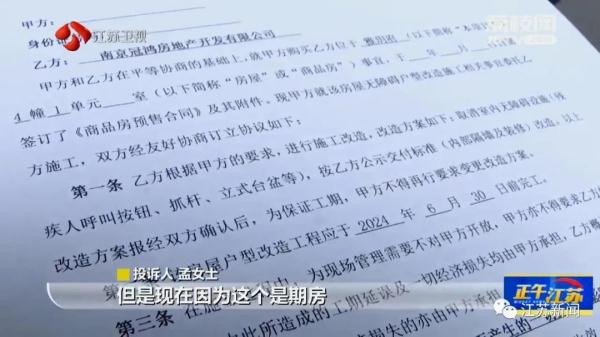 江苏卫视
荔枝网
甲方：
身份证
乙方：南京冠鸿房地产开发有限公司
甲方和乙方在平等协商的基础上，就甲方购买乙方位于 雅居府（以下简称“本项
4 幢 1 单元 室（以下简称“房屋”或“商品房”）事宜，于 年 月
签订了《商品房预售合同》及其附件。现甲方就该房屋无障碍户型改造施工相关事宜委托乙
方施工，双方经友好协商订立协议如下：
第一条 乙方根据甲方的要求，进行施工改造，改造方案如下：取消室内无障碍设施（残
疾人呼叫按钮、抓杆、立式台盆等），按乙方公示交付标准（内部隔墙及装修）改造。以上
改造方案报经双方确认后，为保证工期，甲方不得再行要求变更改造方案。
房屋户型改造工程应于 2024 年 6 月 30 日前完工。
为现场管理需要不对甲方开放，甲方亦不得要求乙方
第三条 在施
此所造成的工期延误及一切经济损失均由甲方承担，乙方概
投诉人 孟女士
但是现在因为这个是期房
正午江苏
江苏新闻